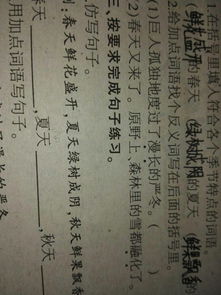 1.在括号里填入适合各个季节特点的词语。
鲜花盛开的春天 (绿树成阴)的夏天 (鲜果飘香)的
2.给加点词语找个反义词写在后面的括号里。
(1)巨人孤独地度过了漫长的严冬。( )
(2)春天又来了。原野上、森林里的雪都融化了。
三、按要求完成句子练习。
仿写句子。
:春天鲜花盛开,夏天绿树成阴,秋天鲜果飘香
春天______,夏天______,秋天
用加点词语写句子。